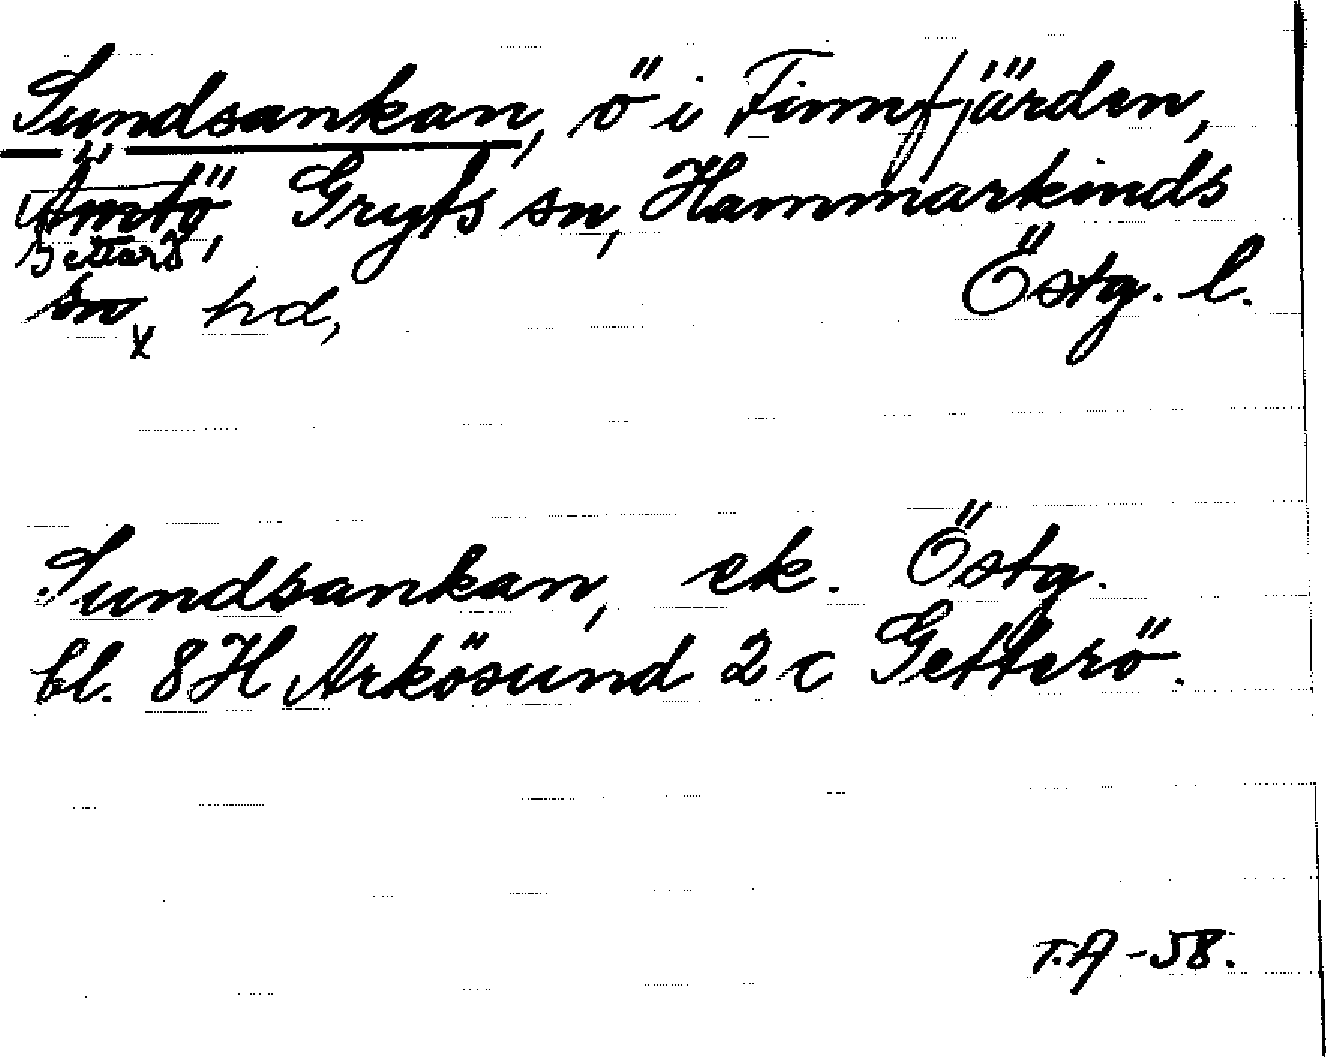 Sundsankan, ö i Finnfjärden,
Ämtö, Gryts sn, Hammarkinds
Getterö
sn x hd, Östg. l.
Sundsankan, ek. Östg.
bl. 8H Arkösund 2 c Getterö.
T.A -58.